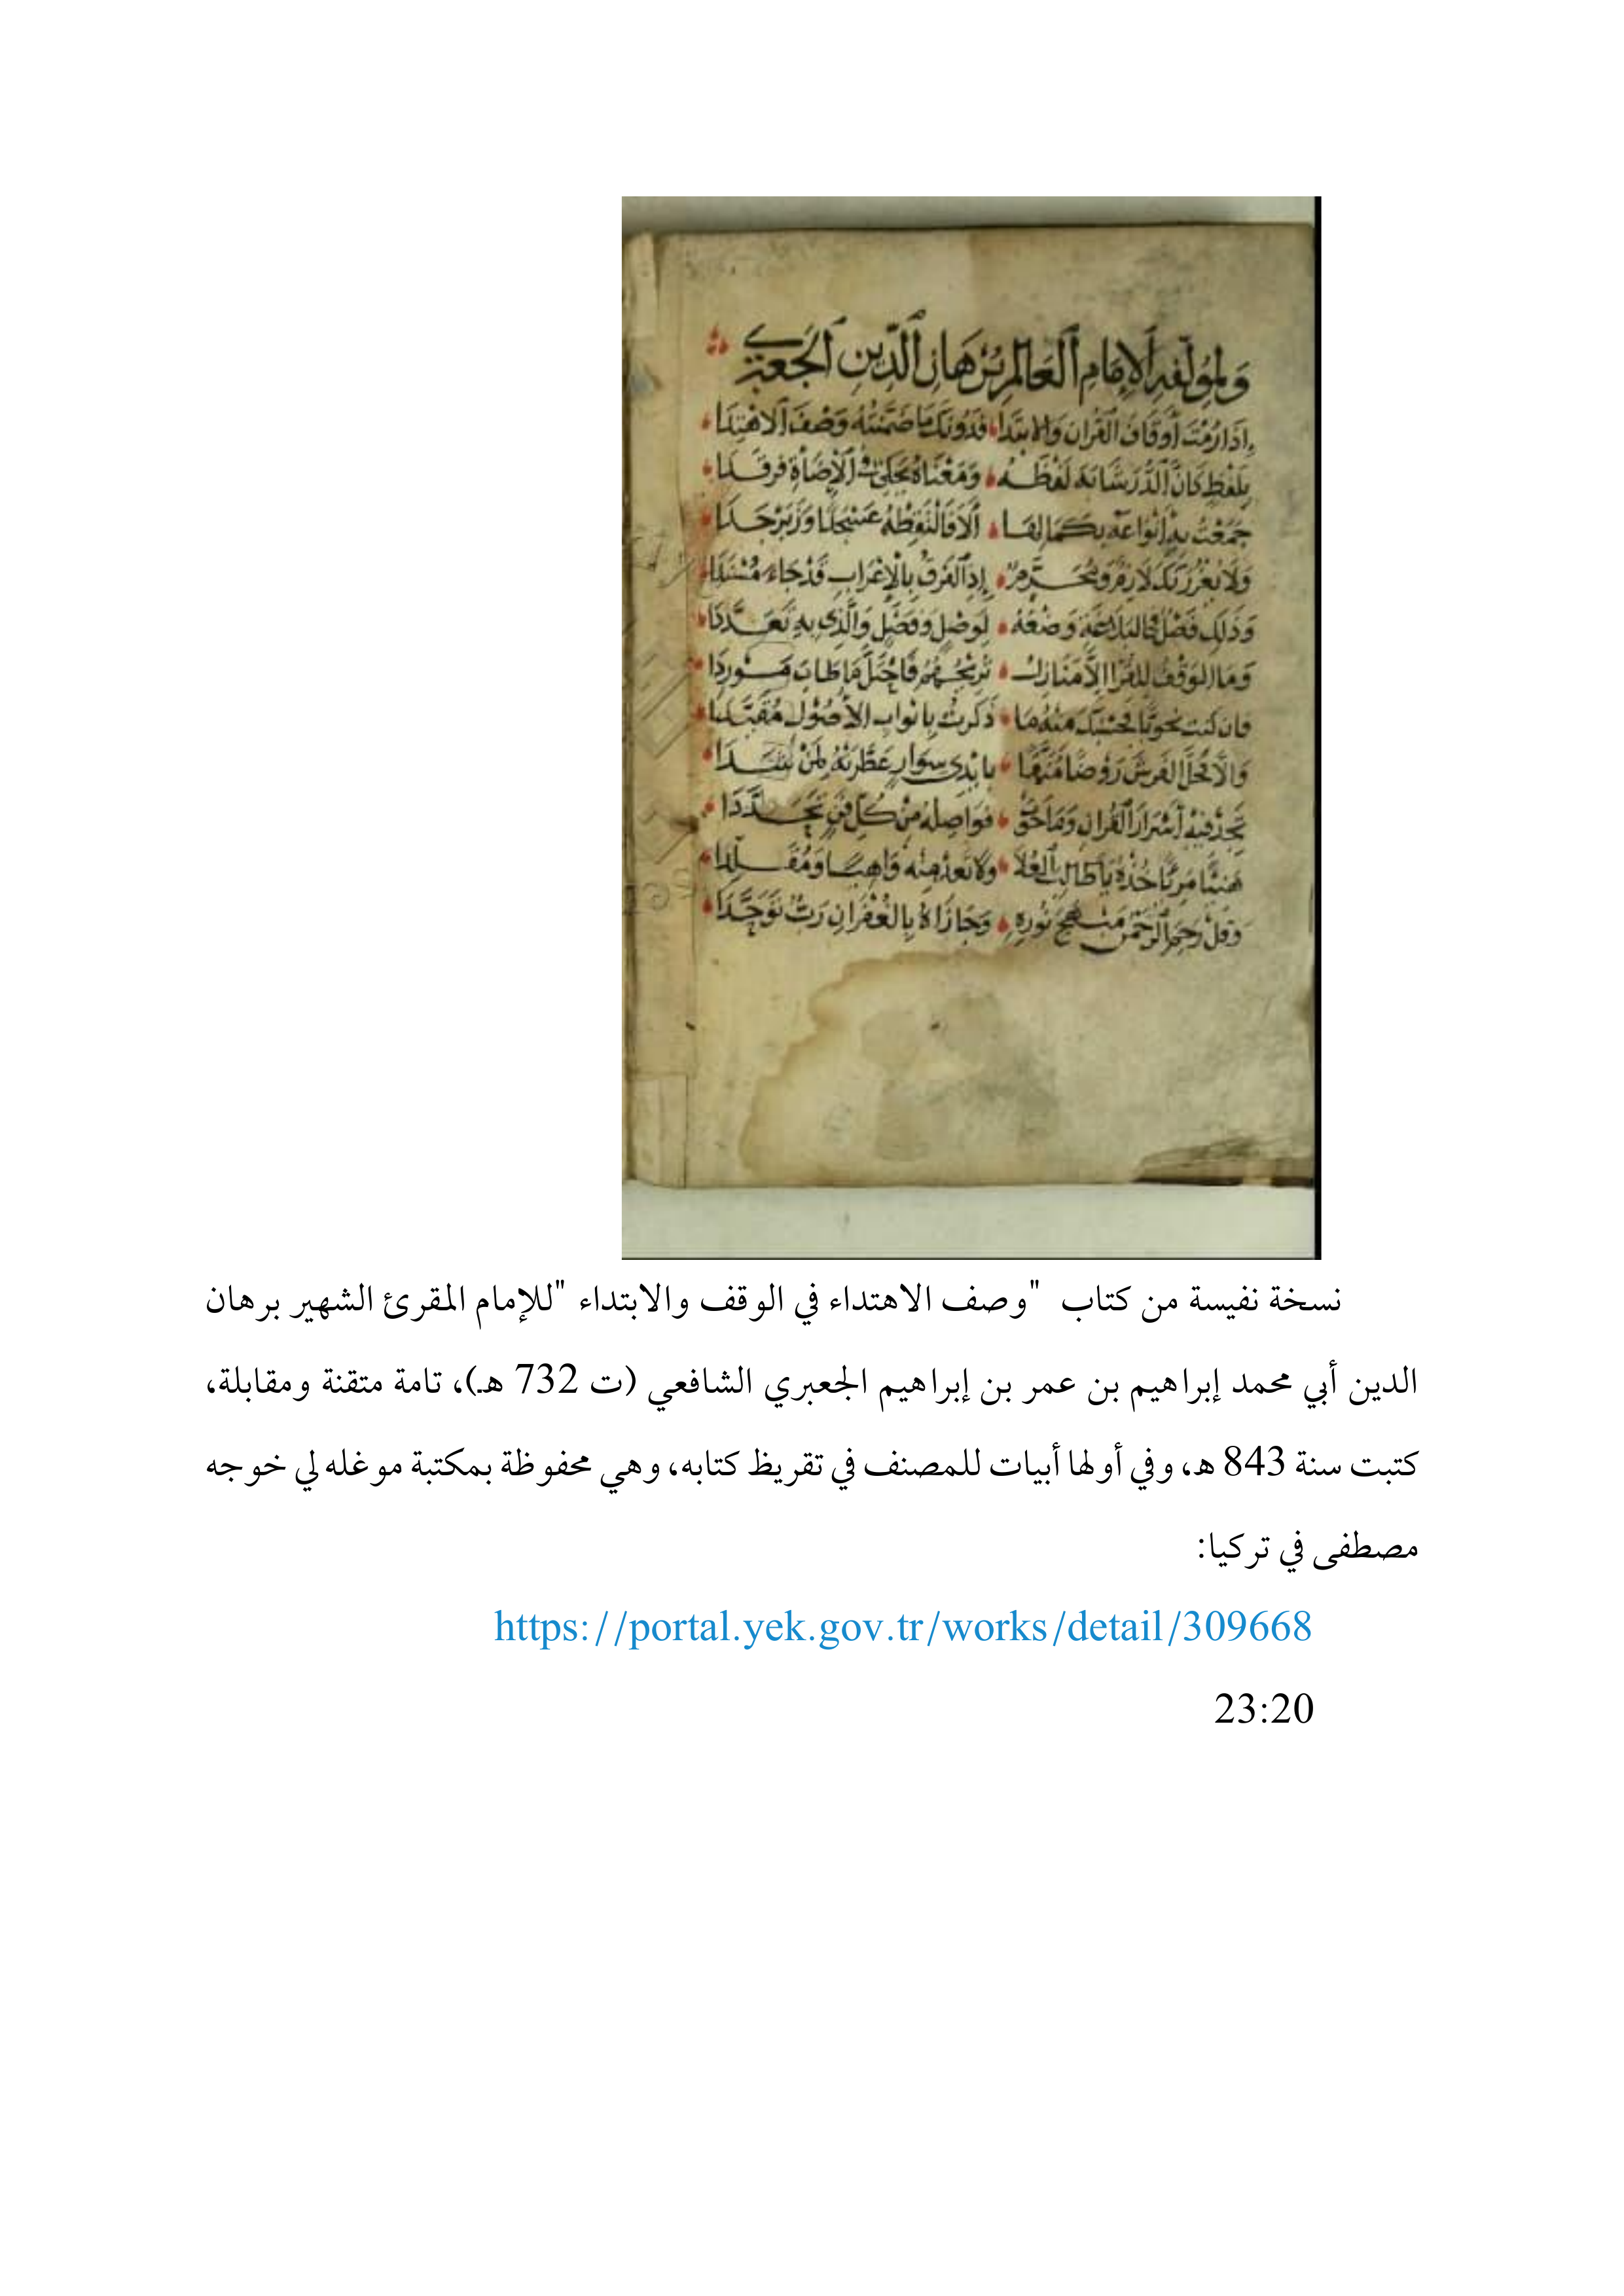 ولمؤلفه الإمام العالم برهان الدين الجعبري
إذا رمت أوقاف القران والابتدا فدونك ما ضمنته وصف الاهتدا
بلفظ كان الدر شابه لفظه ومعناه يحكي في الإضاة فرقدا
جمعت به أنواعه بكمالها ألا فالتقطه عسجدا وزبرجدا
ولا يغررنك لازم ومحرم إذ الفرق بالإعراب قد جاء مسندا
وذلك فصل في البلاغة وضعه لوصل وفصل والذي به تعددا
وما الوقف للقرا إلا منازل تريحهم فاحتل ما طاب موردا
فان كنت نحويا فحسبك منهما ذكرت بابواب الأصول مقيدا
والا فحل الفرش روضا منها بايدي سوار عطرته لمن
تجد فيه أسرار القران وما حوت فواصله من كل فن تجددا
هنيئا مريا خذه يا طالب العلا ولا تعد منه واهبا ومقلدا
وقل رحم الرحمن منهج نوره وجازاه بالغفران رب توحدا
نسخة نفيسة من كتاب "وصف الاهتداء في الوقف والابتداء "للإمام المقرئ الشهير برهان
الدين أبي محمد إبراهيم بن عمر بن إبراهيم الجعبري الشافعي (ت 732 هـ)، تامة متقنة ومقابلة،
كتبت سنة 843 هـ، وفي أولها أبيات للمصنف في تقريظ كتابه، وهي محفوظة بمكتبة موغله لي خوجه
مصطفى في تركيا:
https://portal.yek.gov.tr/works/detail/309668
23:20